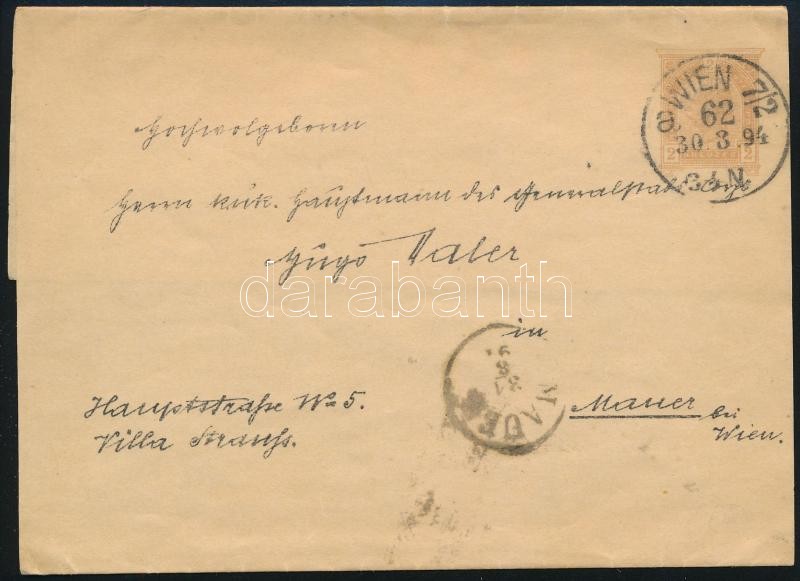 WIEN 7/2
62
30.3.94
8-9.N
Hochwolgeboren
Herrn k.u.k. Hauptmann des Generalstabs Corps
Hugo Valer
darabanth
in
Hauptstraße No 5.
Mauer bei
Villa Strauss.
Wien.
MAUER
31
3